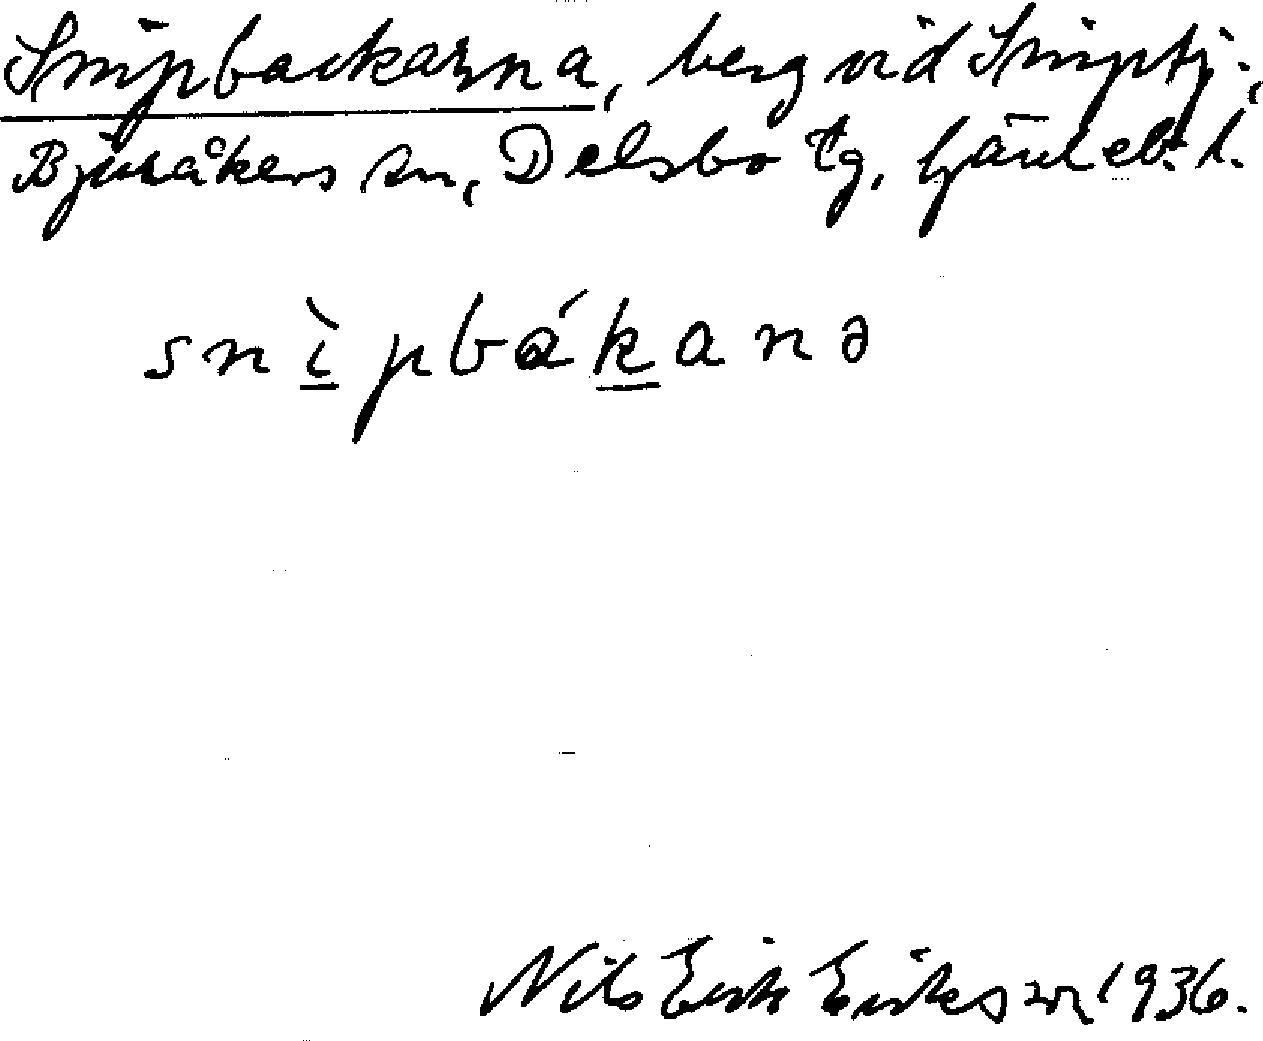 Snipbackarna, berg vid Sniptj.,
Bjuråkers sn, Delsbo tg, Gävleb. l.
snìpbákanə
Nils Erik Eriksson 1936.